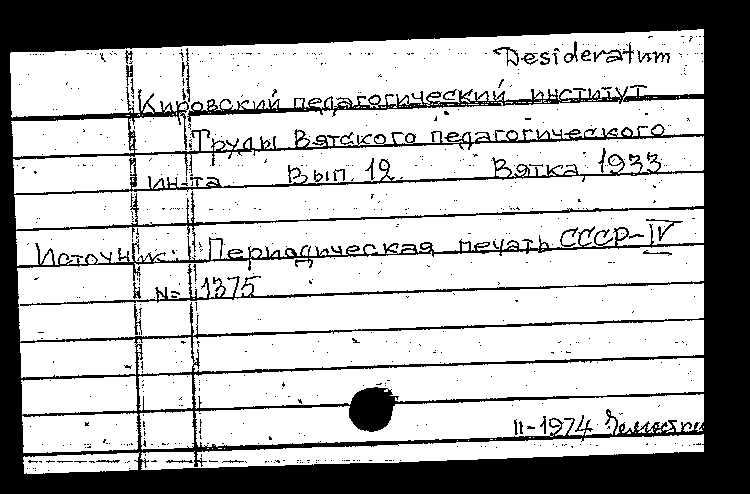 Desideratum
Кировский педагогический институт
Труды Вятского педагогического
ин-та Вып. 12. Вятка, 1933
Источник: Периодическая печать СССР-IV
№ 1375
II-1974